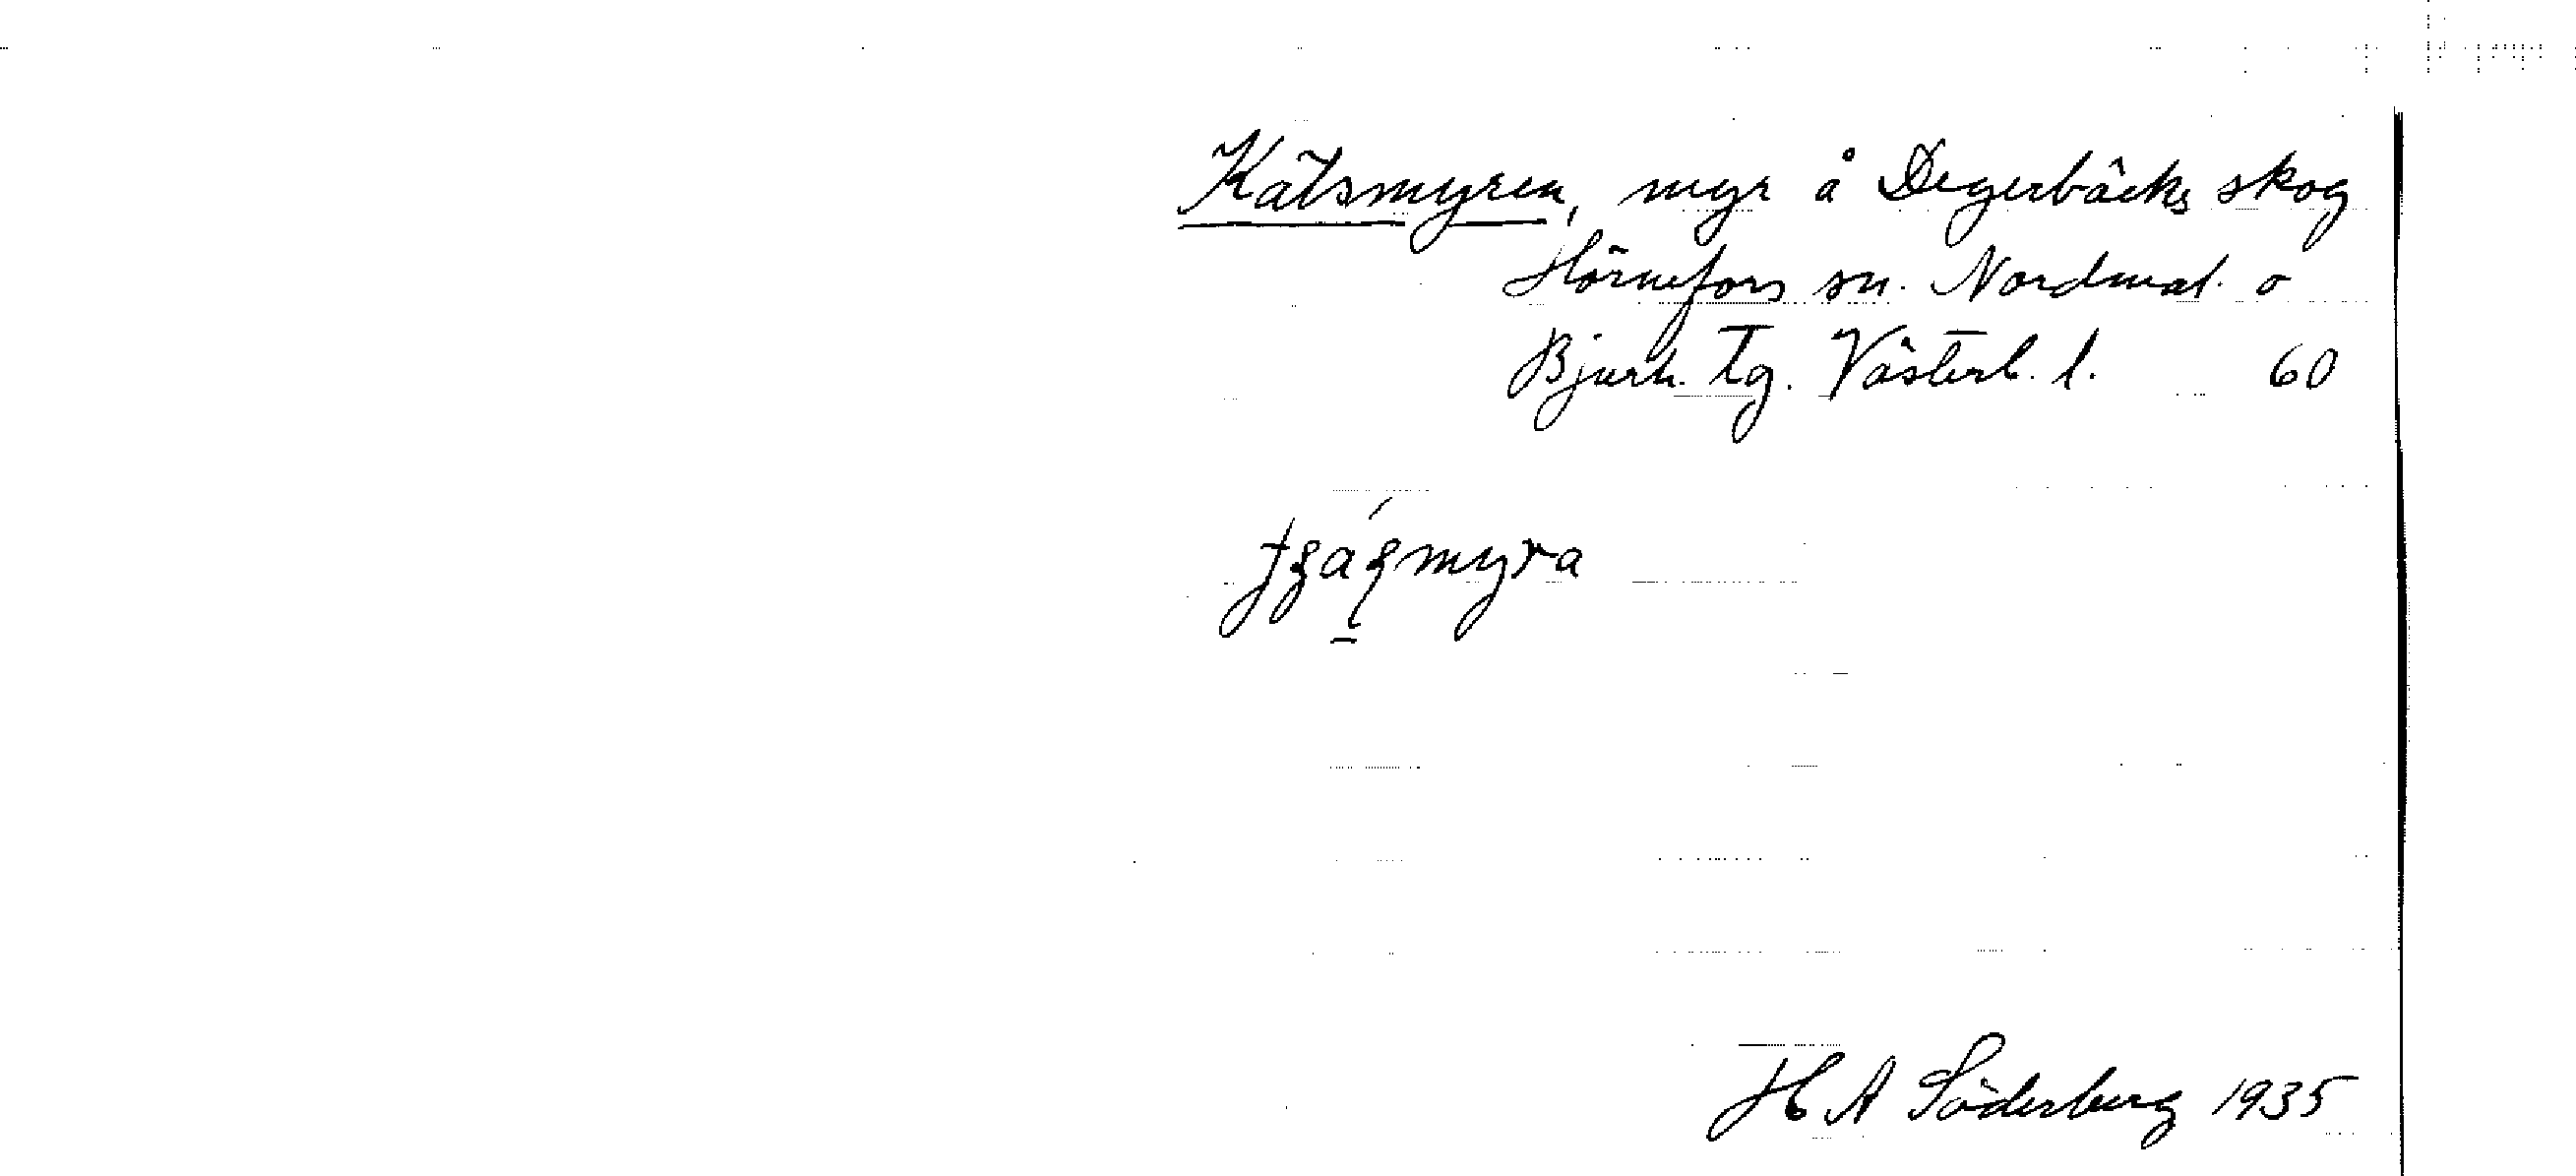 Kätsmyren, myr å Degerbäcks skog
Hörnefors sn. Nordmal. o
Bjurh. Tg. Västerb. l. 60
H A Söderberg 1935